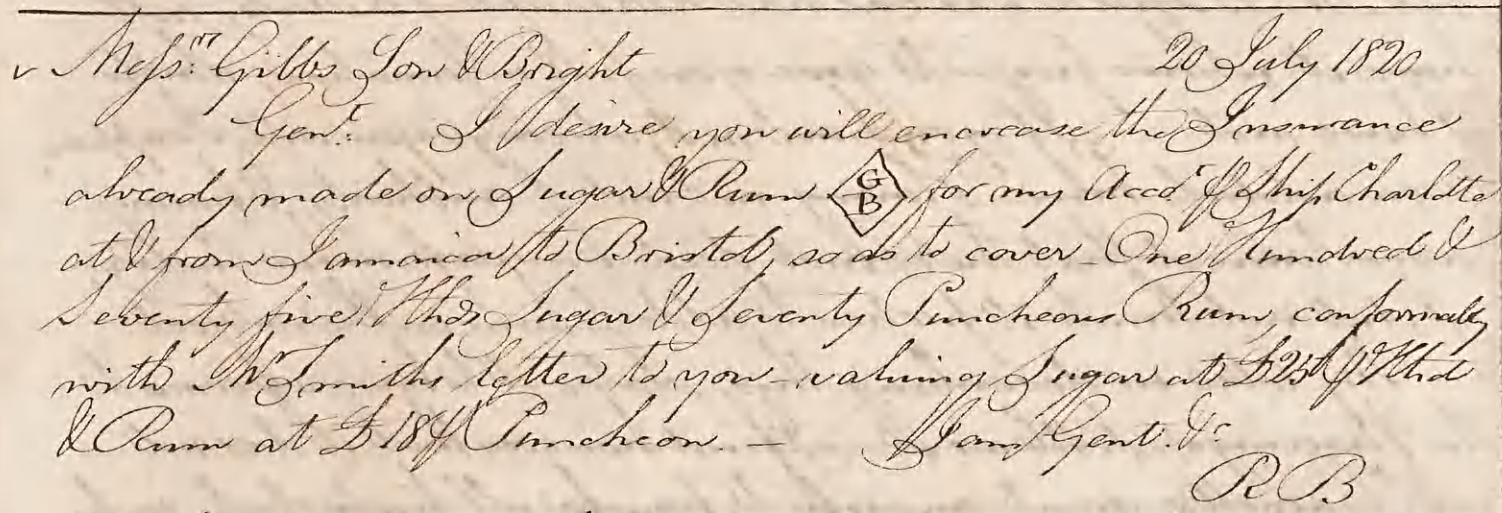 v Mess.rs Gibbs Son & Bright 20 July 1820
Gent. I desire you will encrease the Insurance
already made on Sugar & Rum GB for my Acco.t ⅌ Ship Charlotte
at & from Jamaica to Bristol, so as to cover One Hundred &
Seventy five Hhds Sugar & Seventy Puncheons Rum, conformably
with Mr Smiths letter to you – valuing Sugar at £25 ⅌ Hhd
& Rum at £18 ⅌ Puncheon. – I am Gent. &c
R B